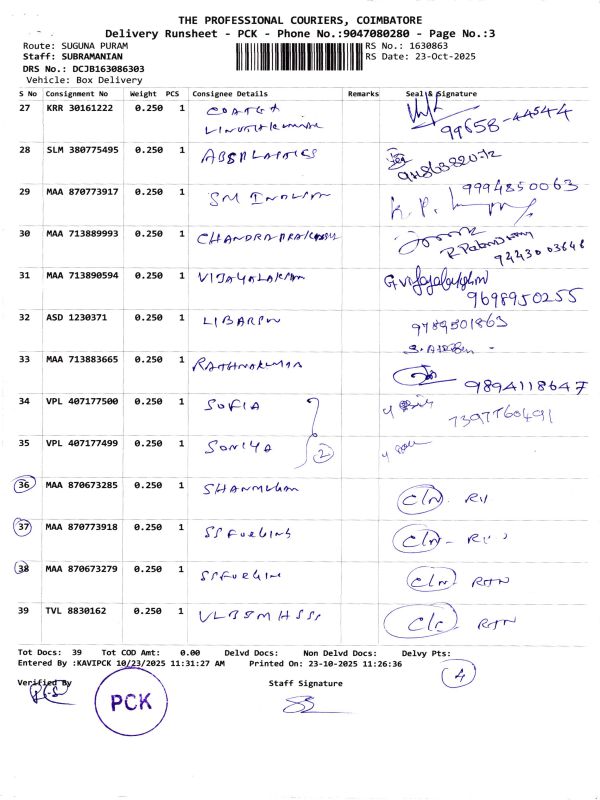 THE PROFESSIONAL COURIERS, COIMBATORE
Delivery Runsheet - PCK - Phone No.:9047080280 - Page No.:3
Route: SUGUNA PURAM RS No.: 1630863
Staff: SUBRAMANIAN RS Date: 23-Oct-2025
DRS No.: DCJB163086303
Vehicle: Box Delivery
S No Consignment No Weight PCS Consignee Details Remarks Seal & Signature
27 KRR 30161222 0.250 1 99658-44544
28 SLM 380775495 0.250 1
29 MAA 870773917 0.250 1 SM 9994850063
K. P.
30 MAA 713889993 0.250 1 CHANDRAPRAKASH
94430 03646
31 MAA 713890594 0.250 1 VIJAYALAKSHMI G Vijayalakshmi
9698950255
32 ASD 1230371 0.250 1 9789501863
33 MAA 713883665 0.250 1 RATHNAKUMAR
9894118647
34 VPL 407177500 0.250 1 SOFIA
7397760491
35 VPL 407177499 0.250 1 SONIYA 2
36 MAA 870673285 0.250 1 SHANMUGAM
37 MAA 870773918 0.250 1
38 MAA 870673279 0.250 1 RTN
39 TVL 8830162 0.250 1 RTN
Tot Docs: 39 Tot COD Amt: 0.00 Delvd Docs: Non Delvd Docs: Delvy Pts:
Entered By :KAVIPCK 10/23/2025 11:31:27 AM Printed On: 23-10-2025 11:26:36
4
Verified By Staff Signature
PCK